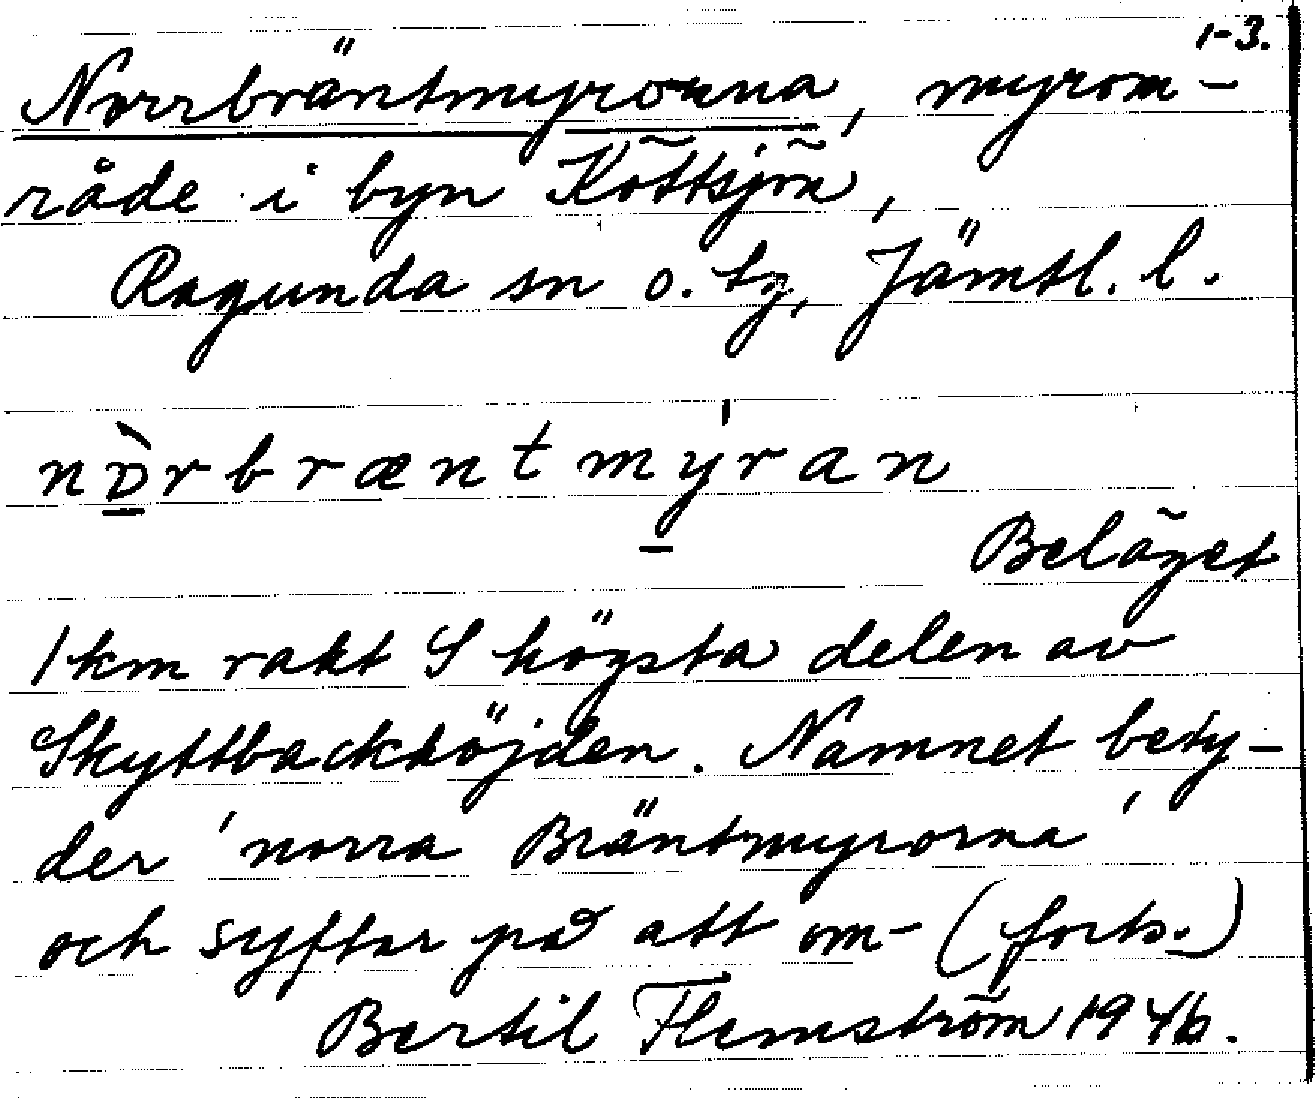 1-3.
Norrbräntmyrorna, myrom-
råde i byn Köttsjön,
Ragunda sn o. tg, Jämtl. l.
nɒ̀rbræntmýran
Beläget
1 km rakt S högsta delen av
Skyttbackhöjden. Namnet bety-
der 'norra Bräntmyrorna'
och syftar på att om- (forts.)
Bertil Flemström 1946.